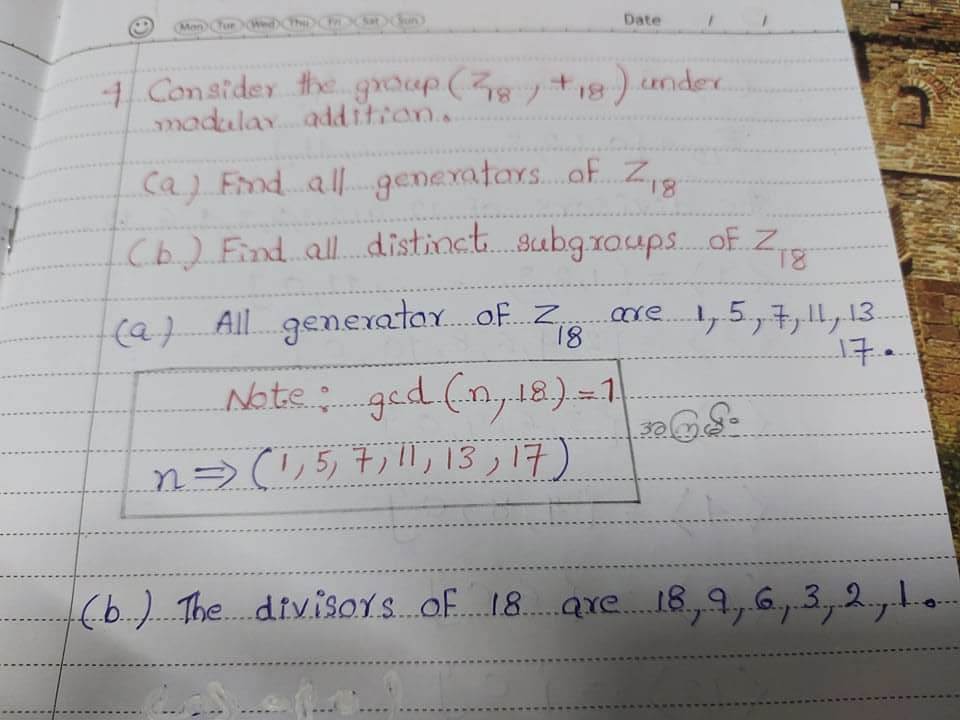 Mon Tue Wed Thu Fri Sat Sun
Date / /
1 Consider the group (Z18, +18) under
modular addition.
(a) Find all generators of Z18
(b.) Find all distinct subgroups of Z18
(a) All generator of Z18 are 1, 5, 7, 11, 13
17.
Note: gcd (n, 18) = 1
n ⇒ (1, 5, 7, 11, 13, 17)
(b.) The divisors of 18 are 18, 9, 6, 3, 2, 1.